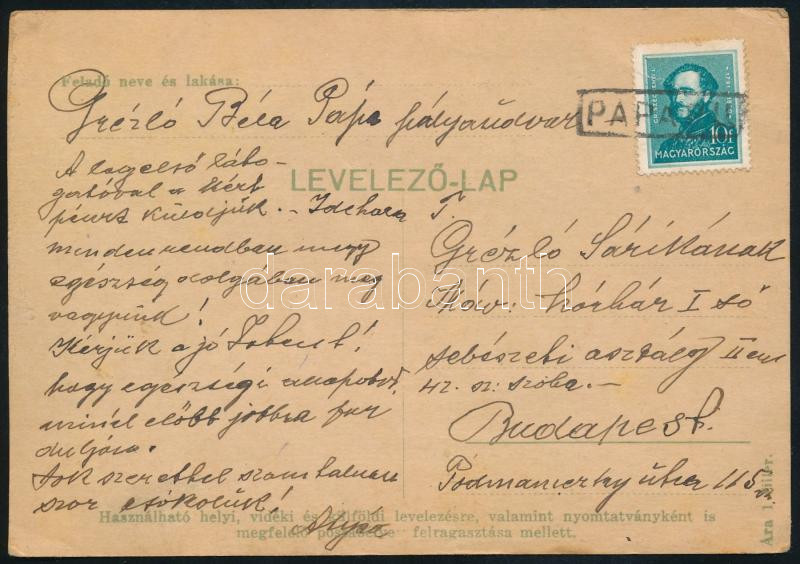 Feladó neve és lakása:
Grézló Béla Pápa pályaudvar
PÁPA
GR. SZÉCHENYI
10f
MAGYARORSZÁG
LEVELEZŐ-LAP
A legelső láto-
gatóval a kért
pénzt küldjük. - Idehaza
minden rendban meg
egészség dolgában meg
vagyunk!
Kérjük a jó Istent!
hogy egészségi állapotod
minél előbb jobbra for
duljon.
Sok szeretettel számtalan
szor csókolunk!
T.
Grézló Sárikának
Máv: kórház I ső
sebészeti osztály II em
42. sz: szoba. -
Budapest.
Podmaniczky utca 115
darabanth
Használható helyi, vidéki és külföldi levelezésre, valamint nyomtatványként is
megfelelő postabérve felragasztása mellett.
Ára 1 fillér.